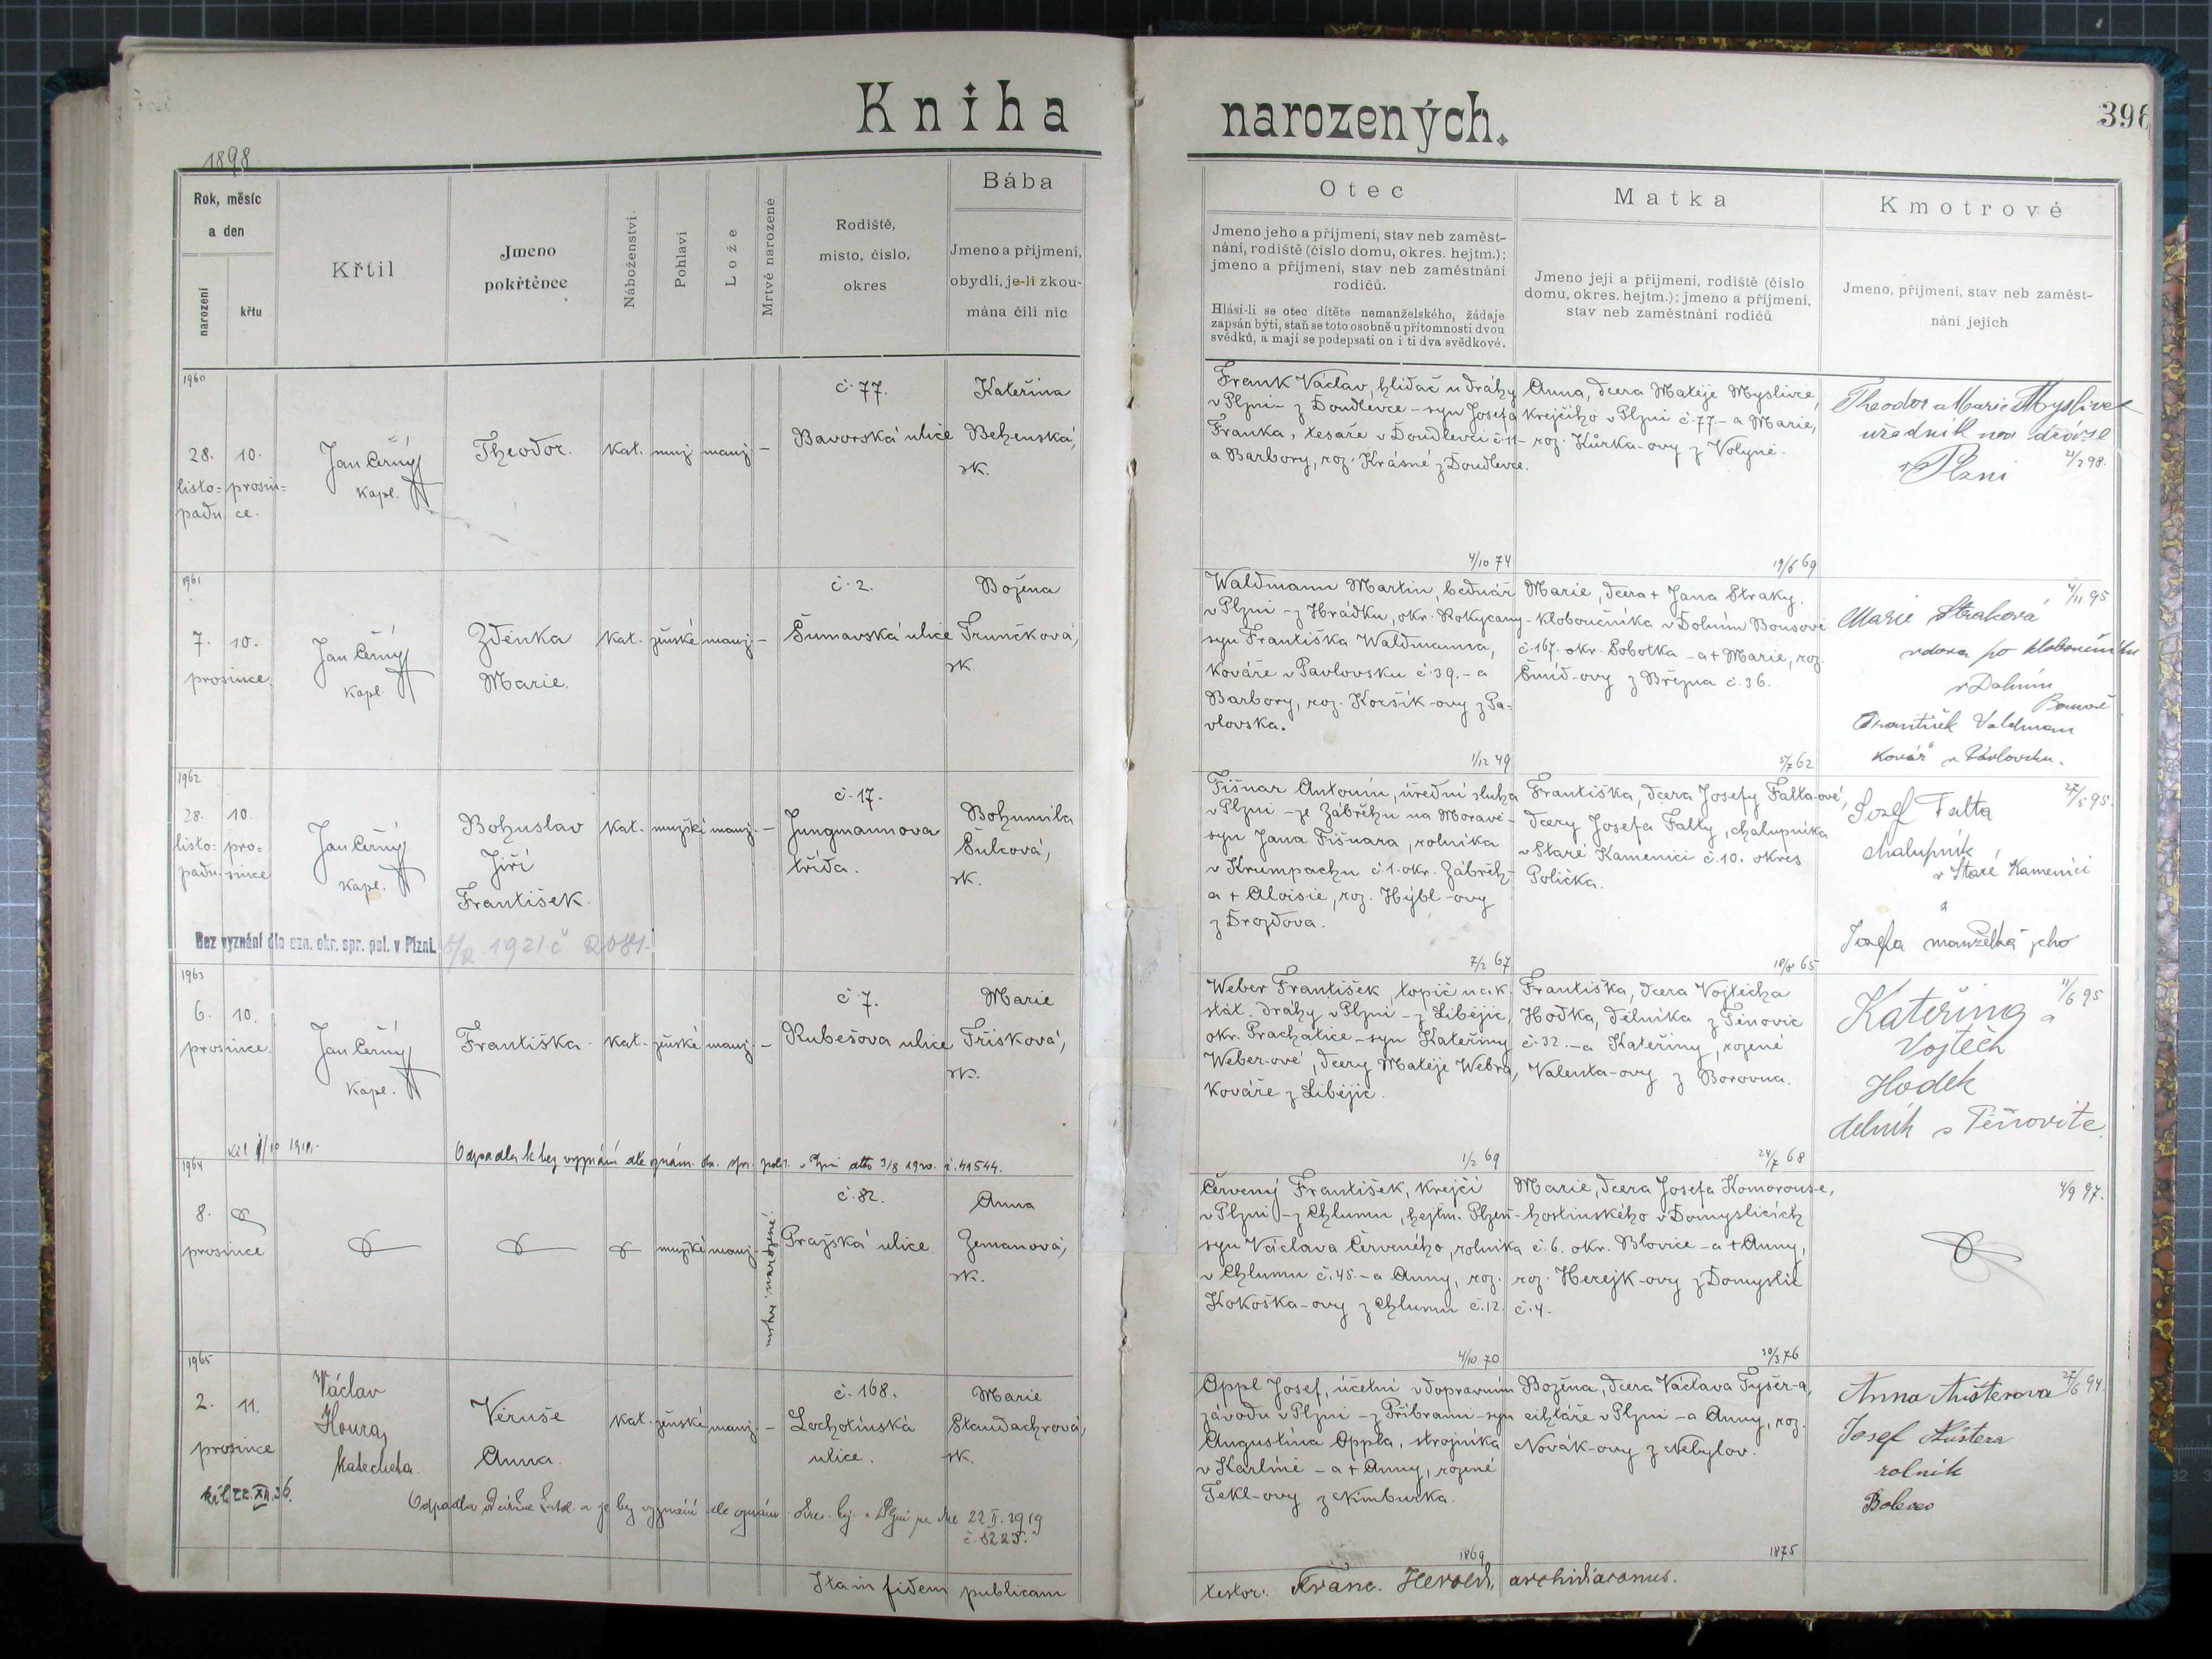 Kniha narozených.
396
1898
Rok, měsíc
a den
narození
křtu
Křtil
Jmeno
pokřtěnce
Náboženství
Pohlaví
Lože
Mrtvě narozené
Rodiště,
místo, číslo,
okres
Bába
Jmeno a příjmení,
obydlí, je-li zkou-
mána čili nic
Otec
Jmeno jeho a příjmení, stav neb zaměst-
nání, rodiště (číslo domu, okres. hejtm.);
jmeno a příjmení, stav neb zaměstnání
rodičů.
Hlásí-li se otec dítěte nemanželského, žádaje
zapsán býti, staň se toto osobně u přítomnosti dvou
svědků, a mají se podepsati on i ti dva svědkové.
Matka
Jmeno její a příjmení, rodiště (číslo
domu, okres. hejtm.); jmeno a příjmení,
stav neb zaměstnání rodičů
Kmotrové
Jmeno, příjmení, stav neb zaměst-
nání jejich
1960
28.
listo-
padu
10.
prosin-
ce.
Jan Černý
kapl.
Theodor.
kat.
muž.
manž.
–
č. 77.
Bavorská ulice
Kateřina
Behenská,
zk.
Frank Václav, hlídač u dráhy
v Plzni – z Doudlevce – syn Josefa
Franka, tesaře v Doudlevci č. 11 –
a Barbory, roz. Krásné z Doudlevce.
4/10 74
Anna, dcera Matěje Myslivce,
krejčího v Plzni č. 77. – a Marie,
roz. Kůrka-ovy z Volyně.
19/6 69
Theodor a Marie Myslivec
uředník na dráze
v Plzni
4/2 98.
1961
7.
prosince.
10.
Jan Černý
kapl.
Zdenka
Marie.
kat.
ženské
manž.
–
č. 2.
Šumavská ulice
Božena
Trunčková,
zk.
Waldmann Martin, bednář
v Plzni – z Hrádku, okr. Rokycany –
syn Františka Waldmanna,
kováře v Pavlovsku č. 39. – a
Barbory, roz. Koršík-ovy z Pa-
vlovska.
1/12 49
Marie, dcera + Jana Straky.
kloboučníka v Dolním Bousově
č. 167. okr. Sobotka – a + Marie, roz.
Šmíd-ovy z Března č. 36.
5/7 62
4/11 95
Marie Straková
vdova po kloboučníku
v Dolním
Bousově
František Valdman
kovář v Pavlovsku.
1962
28.
listo-
padu
10.
pro-
since
Jan Černý
kapl.
Bohuslav
Jiří
František.
kat.
mužské
manž.
–
č. 17.
Jungmannova
třída.
Bohumila
Šulcová,
zk.
Bez vyznání dle ozn. okr. spr. pol. v Plzni. 1921 č 2081.
Fišnar Antonín, úřední sluha
v Plzni – ze Zábřehu na Moravě –
syn Jana Fišnara, rolníka
v Krumpachu č. 1. okr. Zábřeh –
a + Aloisie, roz. Hýbl-ovy
z Drozdova.
7/2 67
Františka, dcera Josefy Falta-ové,
dcery Josefa Falty, chalupníka
v Staré Kamenici č. 10. okres
Polička.
18/8 65
27/5 95.
Josef Falta
chalupník
v Staré Kamenici
a
Josefa manželka jeho
1963
6.
prosince.
10.
Jan Černý
kapl.
Františka.
kat.
ženské
manž.
–
č. 7.
Rubešova ulice
Marie
Tříšková,
zk.
Odpadla k bez vyznání dle oznám. okr. spr. polit. v Plzni dtto 3/8 1920. č. 41544.
Weber František, topič u c. k.
stát. dráhy v Plzni – z Libějic,
okr. Prachatice – syn Kateřiny
Weber-ové, dcery Matěje Webra,
kováře z Libějic.
1/2 69
Františka, dcera Vojtěcha
Hodka, dělníka z Těnovic
č. 32. – a Kateřiny, rozené
Valenta-ovy z Borovna.
24/7 68
11/6 95
Kateřina
a
Vojtěch
Hodek
dělník
1964
8.
prosince
mužské
manž.
mrtvě narozené.
č. 82.
Pražská ulice.
Anna
Zemanová,
zk.
Červený František, krejčí
v Plzni – z Chlumu, hejtm. Plzeň –
syn Václava Červeného, rolníka
v Chlumu č. 45. – a Anny, roz.
Kokoška-ovy z Chlumu č. 12.
4/10 70
Marie, dcera Josefa Komorouse,
hostinského v Domyslicích
č. 6. okr. Blovice – a + Anny,
roz. Herejk-ovy z Domyslic
č. 4.
30/3 76
4/9 97.
1965
2.
prosince
11.
Václav
Houra,
katecheta.
Věruše
Anna.
kat.
ženské
manž.
–
č. 168.
Lochotínská
ulice.
Marie
Staudachrová,
zk.
Odpadla a je bez vyznání dle oznám. 22.II.1919
č. 8225.
Oppl Josef, účetní v dopravním
závodu v Plzni – z Příbrami – syn
Augustina Oppla, strojníka
v Karlíně – a + Anny, rozené
Tekl-ovy z Nimburka.
1869
Božena, dcera Václava Fyšer-a,
cihláře v Plzni – a Anny, roz.
Novák-ovy z Nebylov.
1875
27/6 94.
Anna
Josef
rolník
Bolevec
Ita in fidem publicam
testor: Franc. Herold, archidiaconus.